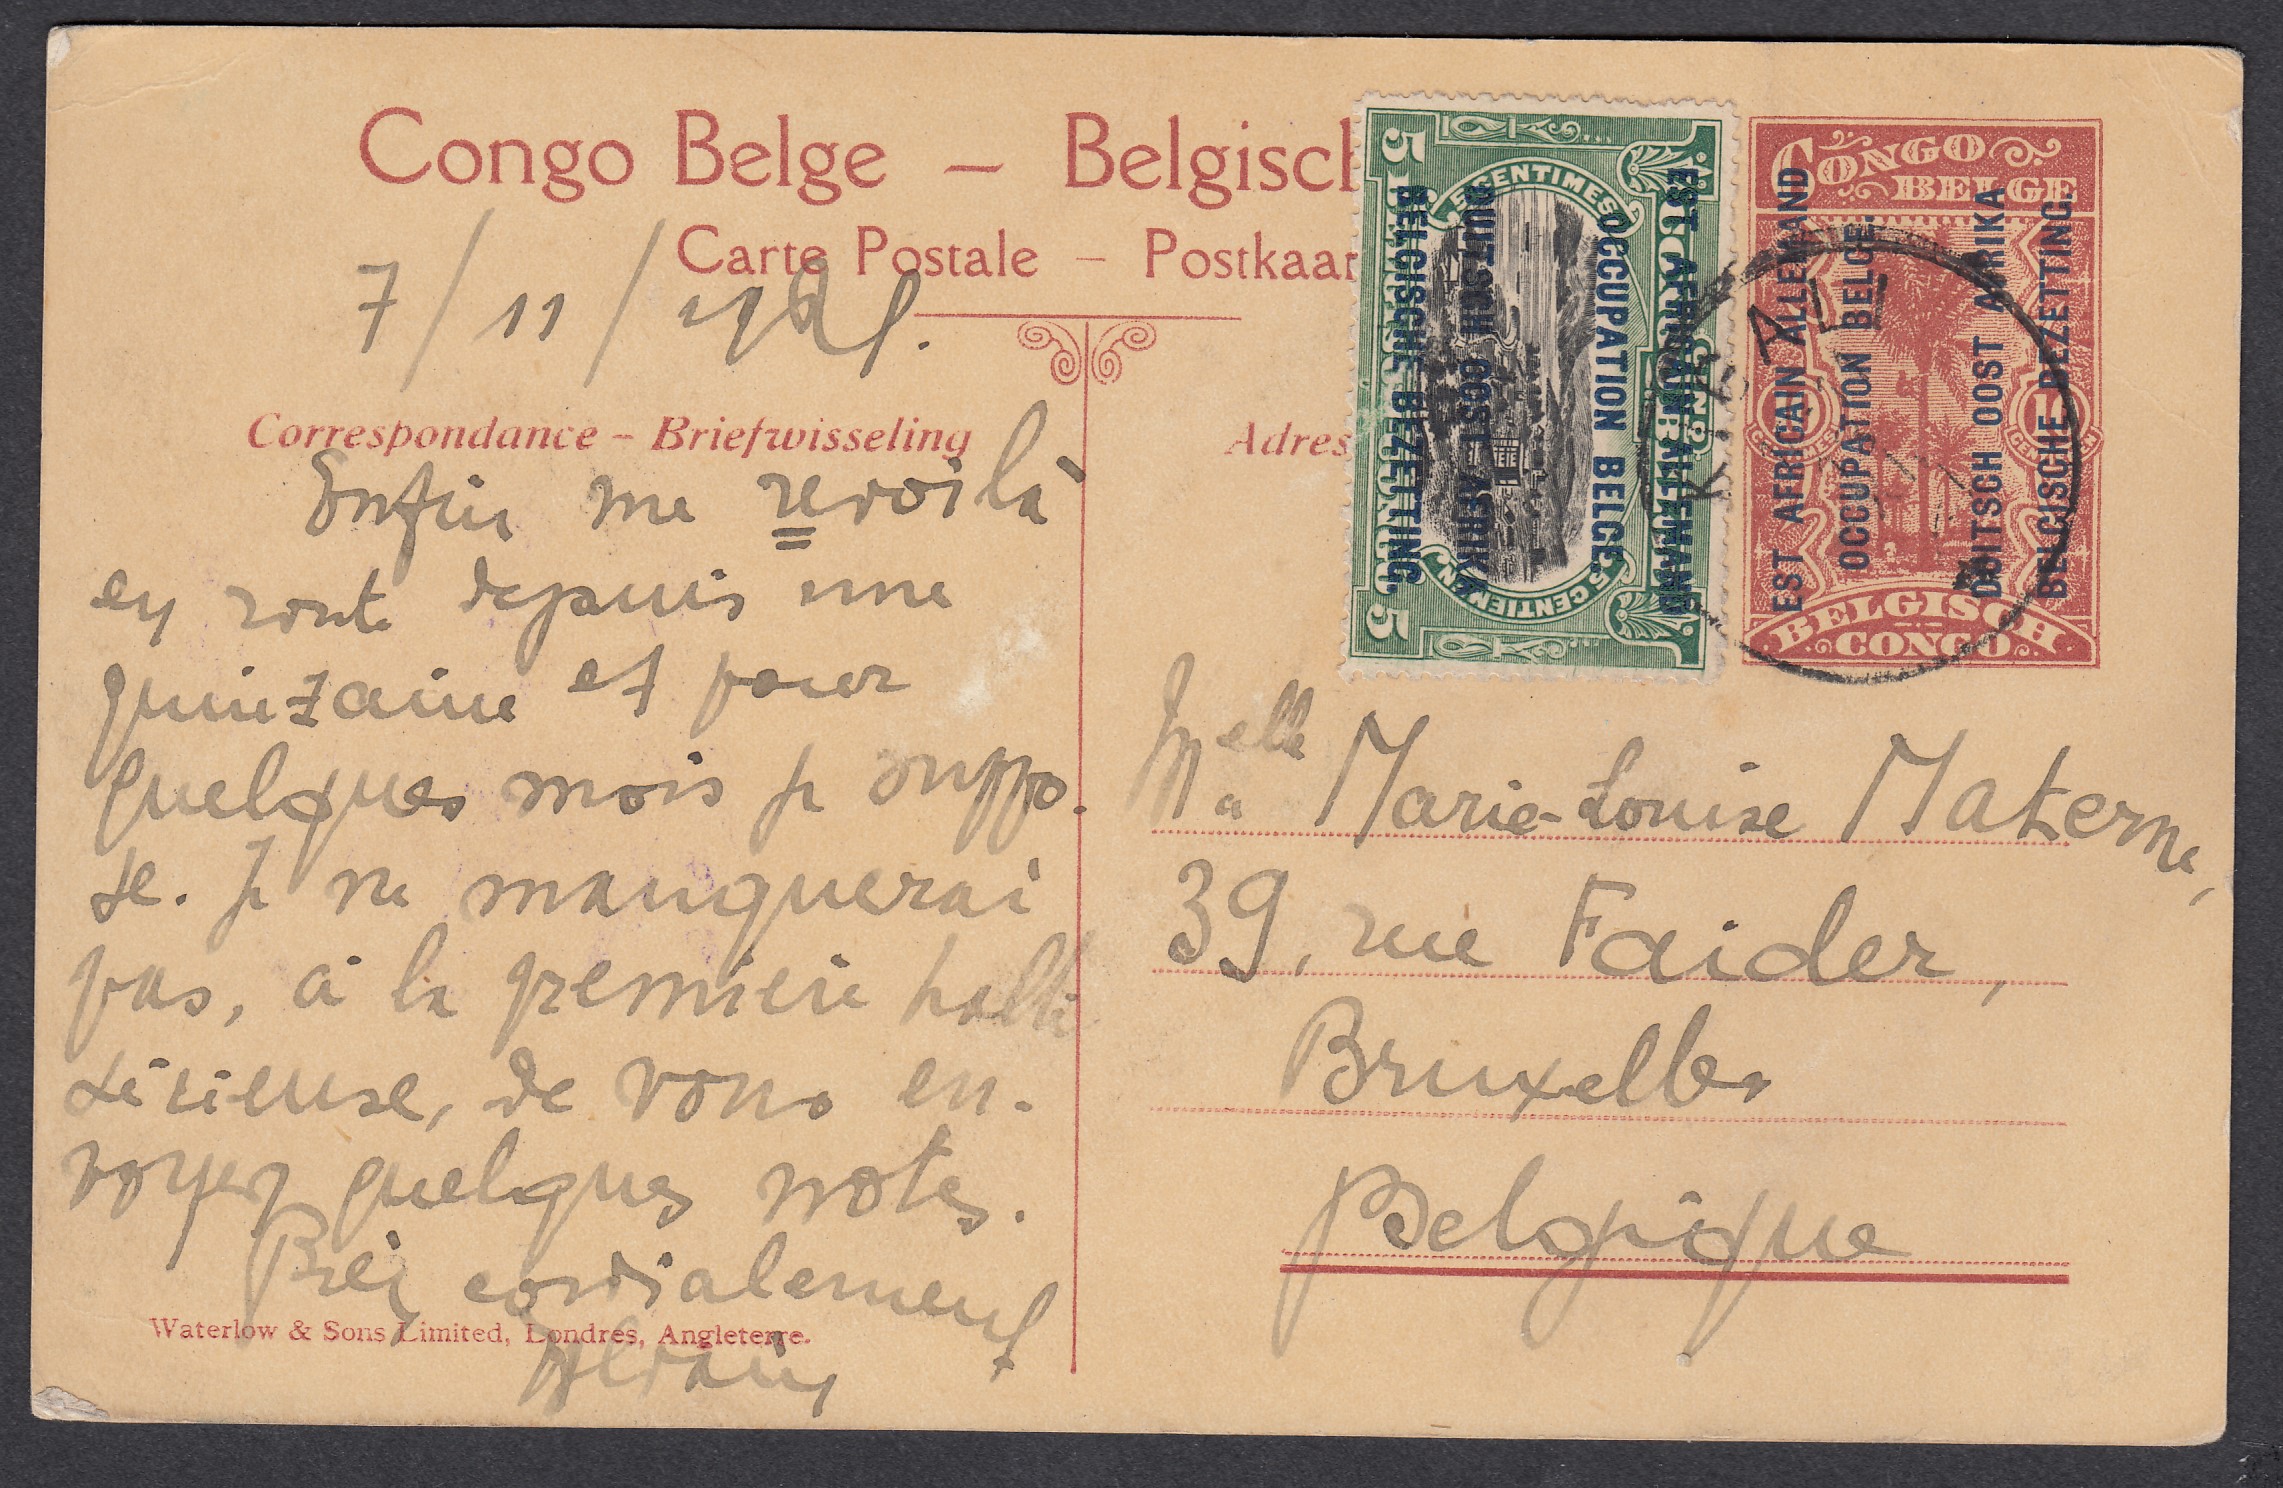 Congo Belge – Belgisch
Carte Postale – Postkaar
7/11/
Correspondance – Briefwisseling
Adres
Enfin me revoilà
en route depuis une
quinzaine et pour
quelques mois je suppo-
se. Je ne manquerai
pas, à la première halte
sérieuse, de vous en-
voyer quelques notes.
Très cordialement
Waterlow & Sons Limited, Londres, Angleterre.
5 CENTIMES 5
EST AFRICAIN ALLEMAND
OCCUPATION BELGE.
DUITSCH OOST AFRIKA
BELGISCHE BEZETTING.
5 CENTIEMEN 5
CONGO
BELGE
EST AFRICAIN ALLEMAND
OCCUPATION BELGE.
DUITSCH OOST AFRIKA
BELGISCHE BEZETTING.
10 CENTIMES
10 CENTIEMEN
BELGISCH
CONGO
Melle Marie-Louise Materne,
39, rue Faider,
Bruxelles
Belgique